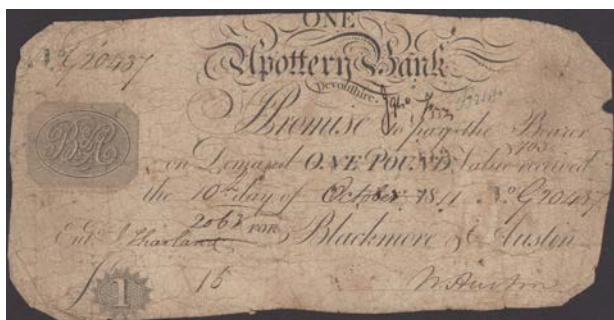 ONE
No G20437
Upottery Bank
Devonshire.
I Promise to pay the Bearer
on Demand ONE POUND Value received
B&A
the 10th day of October 1811 No G20437
2063
FOR Blackmore & Austen
Entd
£1
15
W Austen